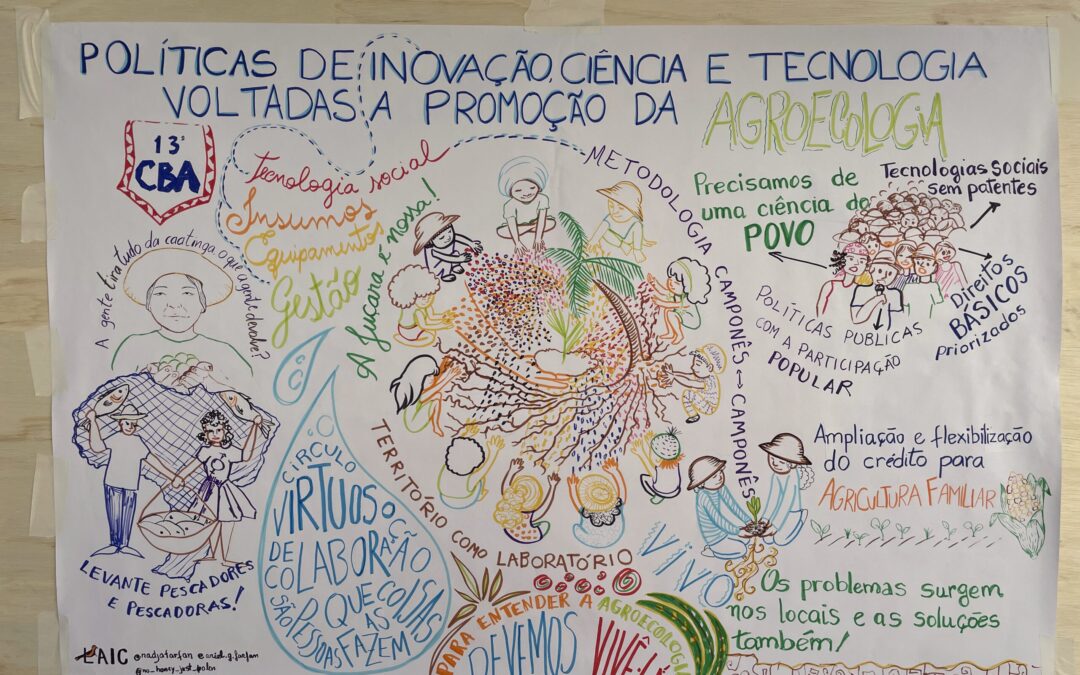 POLÍTICAS DE INOVAÇÃO, CIÊNCIA E TECNOLOGIA
VOLTADAS A PROMOÇÃO DA AGROECOLOGIA
13º
CBA
Tecnologia social
Insumos
Equipamentos
Gestão
A Juçara é nossa!
METODOLOGIA CAMPONÊS ↔ CAMPONÊS
Precisamos de
uma ciência do
POVO
Tecnologias sociais
sem patentes
Direitos
BÁSICOS
priorizados
POLÍTICAS PUBLICAS
COM A PARTICIPAÇÃO
POPULAR
A gente tira tudo da caatinga o que a gente devolve?
LEVANTE PESCADORES
E PESCADORAS!
CÍRCULO
VIRTUOSO
DE
COLABORAÇÃO
SÃO
PESSOAS
O QUE
AS
COISAS
FAZEM
TERRITÓRIO COMO LABORATÓRIO
VIVO
Ampliação e flexibilização
do crédito para
AGRICULTURA FAMILIAR
Os problemas surgem
nos locais e as soluções
também!
PARA ENTENDER A AGROECOLOGIA
DEVEMOS
VIVÊ-LA
LAIC @nadjatarjan e